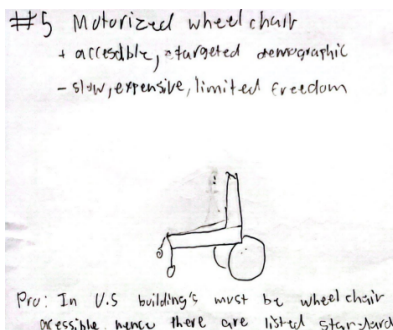 #5 Motorized wheelchair
+ accessible, targeted demographic
- slow, expensive, limited freedom
Pro: In U.S building's must be wheel chair
accessible, hence there are listed standard